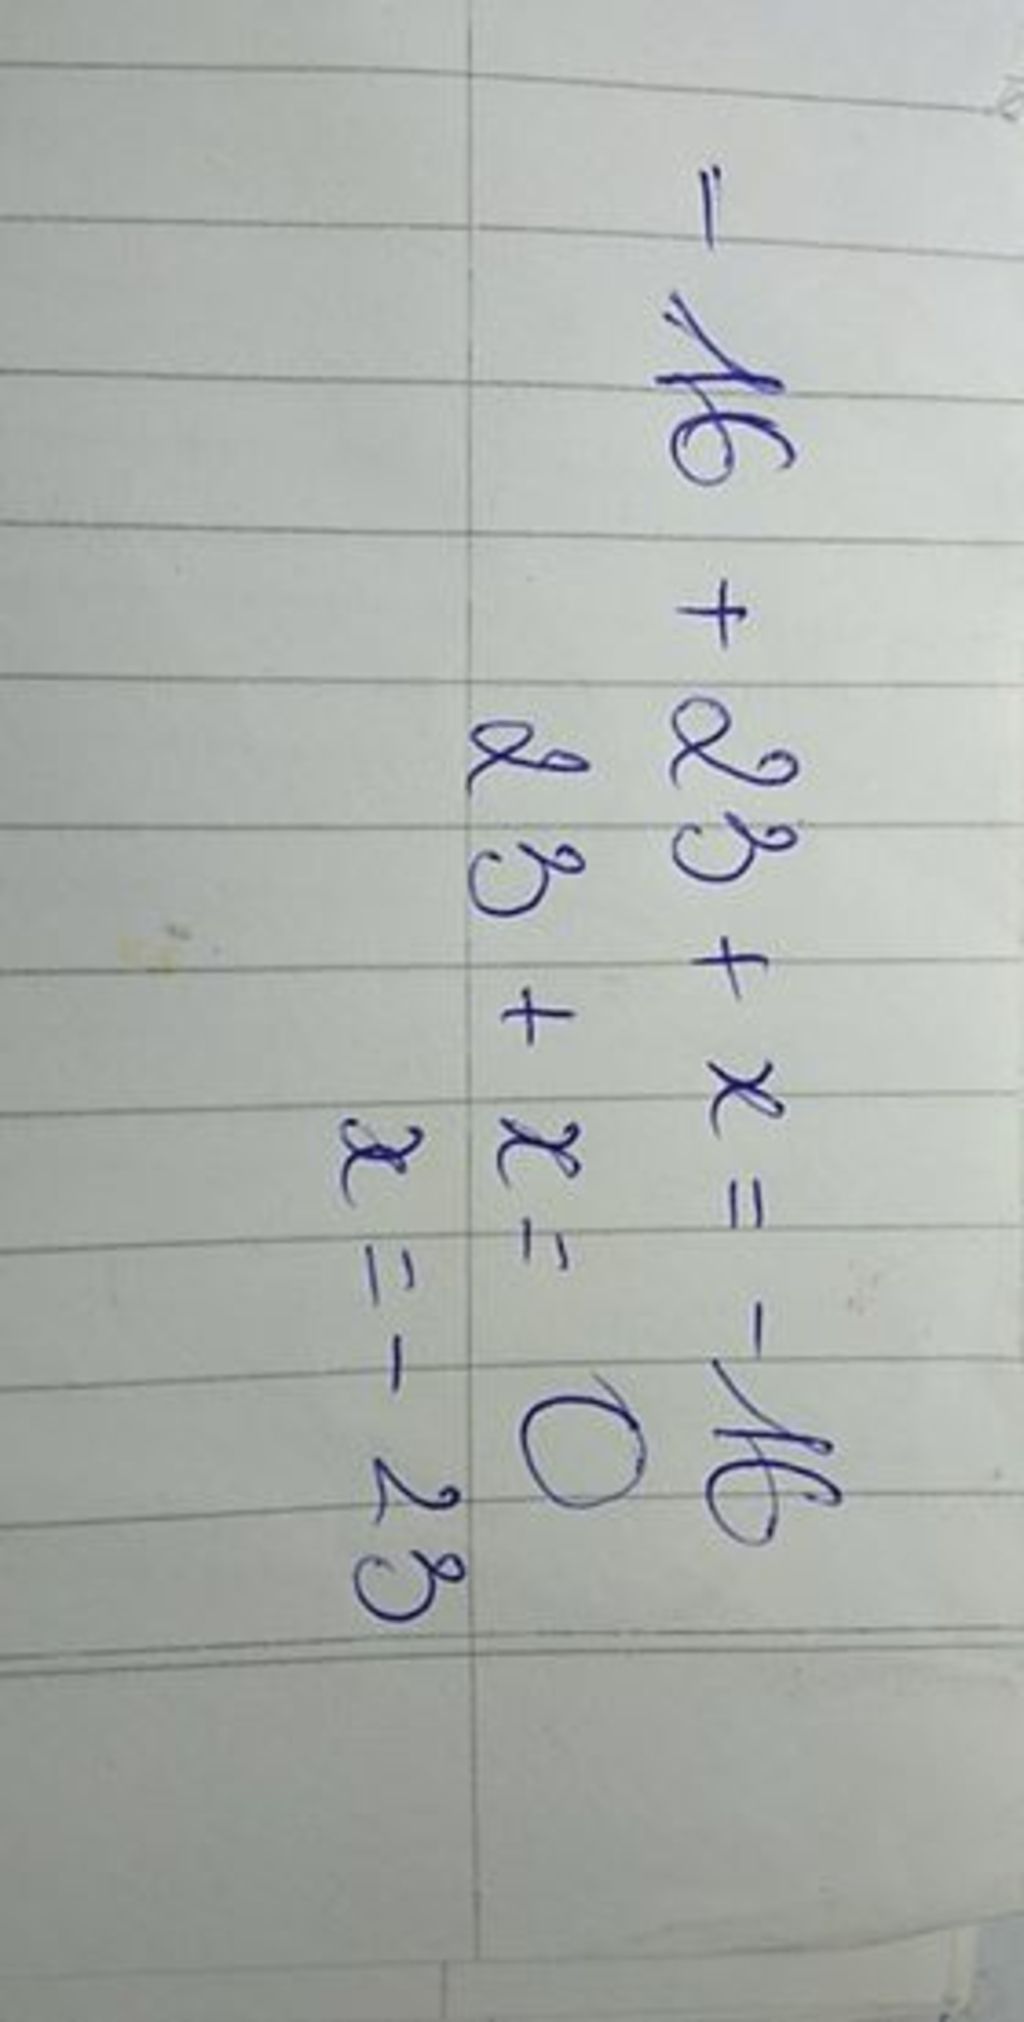 - 16 + 23 + x = - 16
23 + x = 0
x = - 23